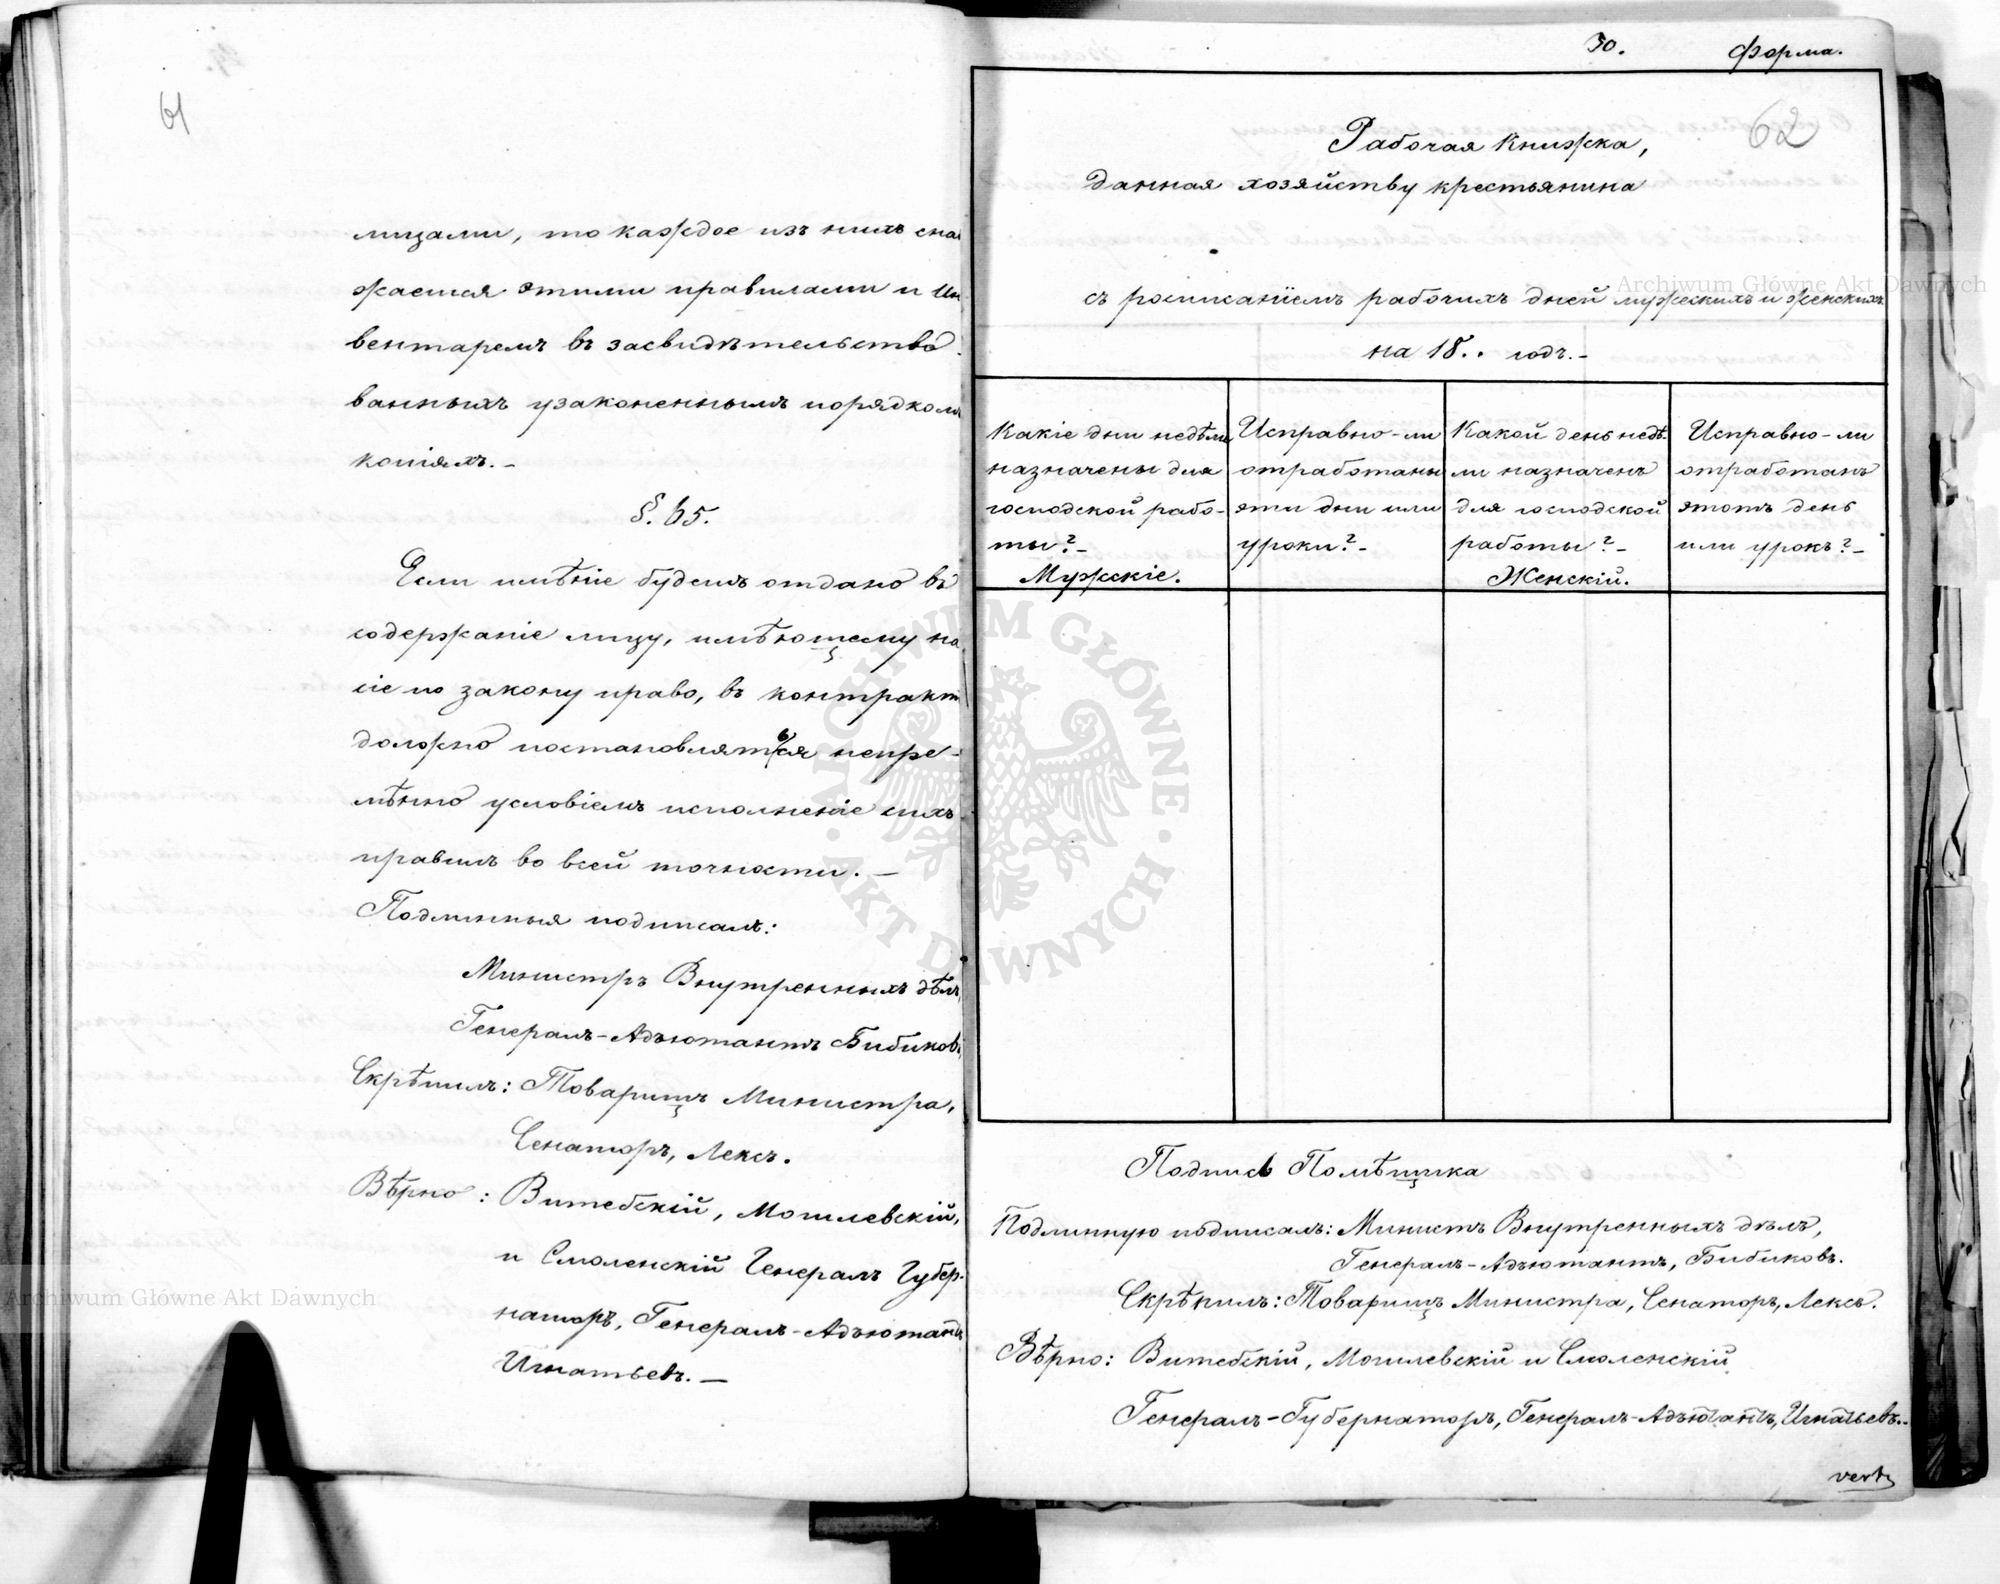 61
лицами, то каждое изъ нихъ сна
жается этими правилами и Ин
вентаремъ въ засвидѣтельство
ванныхъ узаконеннымъ порядкомъ
копіяхъ. –
§. 65.
Если имѣніе будетъ отдано въ
содержаніе лицу, имѣющему на
сіе по закону право, въ контракт
должно постановляться непре-
мѣнно условіемъ исполненіе сихъ
правилъ во всей точности. –
Подлинныя подписалъ:
Министръ Внутреннихъ дѣлъ,
Генералъ-Адъютантъ Бибиковъ,
Скрѣпилъ: Товарищъ Министра,
Сенаторъ, Лексъ.
Вѣрно: Витебскій, Могилевскій,
и Смоленскій Генералъ Губер-
наторъ, Генералъ-Адъютантъ
Игнатьевъ. –
30. Форма.
62
Рабочая Книжка,
данная хозяйству крестьянина
съ росписаніемъ рабочихъ дней мужескихъ и женскихъ
на 18.. годъ. –
Какіе дни недѣли
назначены для
господской рабо-
ты? –
Мужскіе.
Исправно-ли
отработаны
эти дни или
уроки? –
Какой день недѣ-
ли назначенъ
для господской
работы? –
Женскій.
Исправно-ли
отработанъ
этотъ день
или урокъ? –
Подпись Помѣщика
Подлинную подписалъ: Министъ Внутренныхъ дѣлъ,
Генералъ-Адъютантъ, Бибиковъ.
Скрѣпилъ: Товарищъ Министра, Сенаторъ, Лексъ.
Вѣрно: Витебскій, Могилевскій и Смоленскій
Генералъ-Губернаторъ, Генералъ-Адъютантъ, Игнатьевъ.
Archiwum Główne Akt Dawnych
Archiwum Główne Akt Dawnych
ARCHIWUM GŁÓWNE · AKT DAWNYCH ·